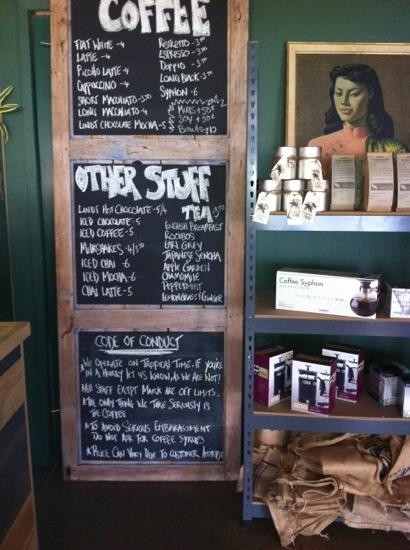 COFFEE
FLAT WHITE -4
LATTE -4
PICCOLO LATTE -4
CAPPUCCINO -4
SHORT MACCHIATO -3.50
LONG MACCHIATO -4
LINDT CHOCOLATE MOCHA -5
RISTRETTO -3.50
ESPRESSO -3.50
DOPPIO -3.50
LONG BLACK -3.50
SYPHON -6
MUGS +50¢
SOY +50¢
OTHER STUFF
LINDT HOT CHOCOLATE -5/4
ICED CHOCOLATE -5
ICED COFFEE -5
MILKSHAKES -4/3.50
ICED CHAI -6
ICED MOCHA -6
CHAI LATTE -5
TEA 3.50
ENGLISH BREAKFAST
ROOIBOS
EARL GREY
JAPANESE SENCHA
APPLE GARDEN
CHAMOMILE
PEPPERMINT
LEMONGRASS & GINGER
CODE OF CONDUCT
WE OPERATE ON TROPICAL TIME. IF YOU'RE
IN A HURRY LET US KNOW, AS WE ARE NOT!
ALL STAFF EXEPT MARK ARE OFF LIMITS.
THE ONLY THING WE TAKE SERIOUSLY IS
THE COFFEE
TO AVOID SERIOUS EMBARASSMENT
DO NOT ASK FOR COFFEE SYRUPS
PRICE CAN VARY DUE TO CUSTOMER ATTITUDE
Coffee Syphon